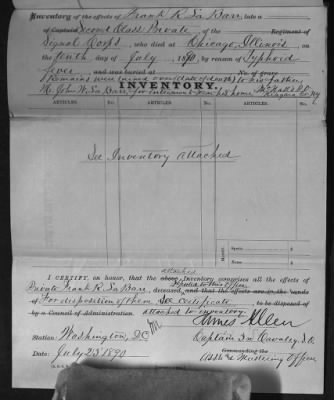 Inventory of the effects of Frank R. La Barr, late a
of Captain Second Class Private of the Regiment of
Signal Corps, who died at Chicago, Illinois, on
the tenth day of July, 1890, by reason of Typhoid
fever and was buried at No. of grave
Remains were turned over (date of death) to his father,
Mr. John W. La Barr, for interment near his home, Niagara Co. NY
INVENTORY.
ARTICLES. ARTICLES. ARTICLES. ARTICLES.
See Inventory attached
Specie
Notes
I CERTIFY, on honor, that the above attached Inventory comprises all the effects of
Private Frank R. La Barr, deceased, reported to this Office and that the effects are in the hands
of For disposition of them see certificate to be disposed of
by a Council of Administration. attached to inventory
James Allen
Station: Washington, D.C.
Captain 3rd Cavalry,
Date: July 25 1890
Commanding the
Mustering Officer